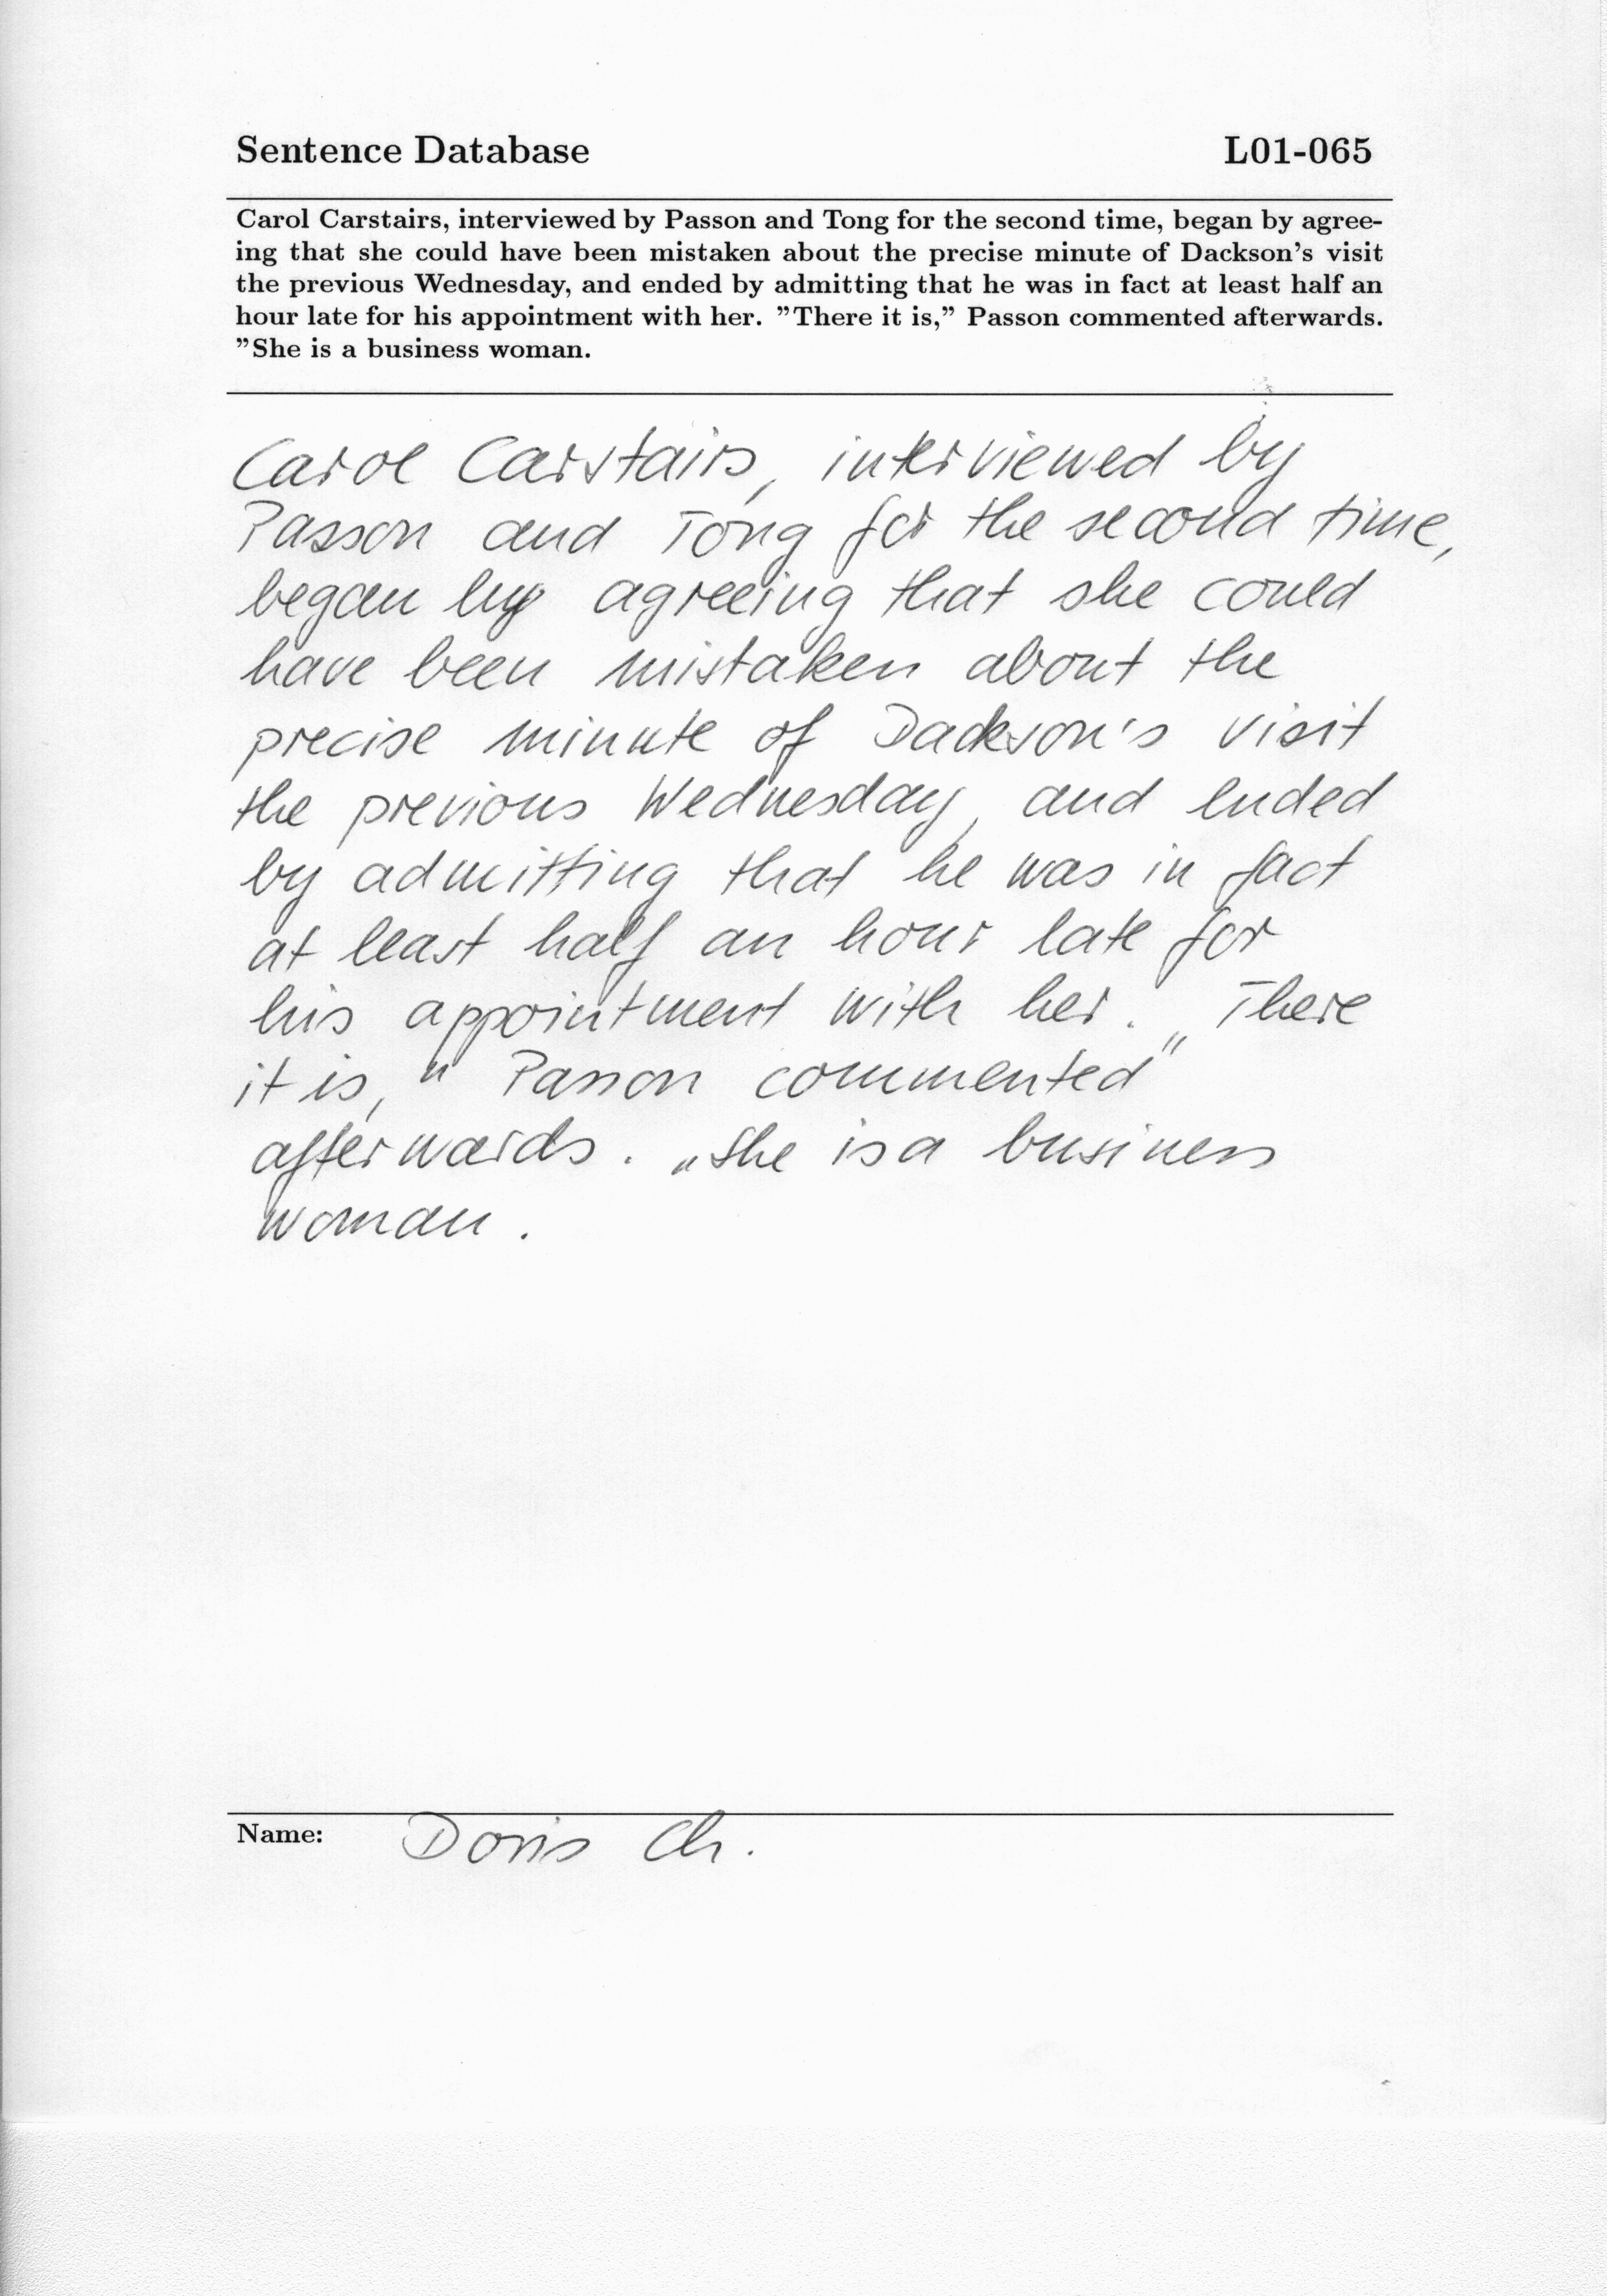 Sentence Database L01-065
Carol Carstairs, interviewed by Passon and Tong for the second time, began by agree-
ing that she could have been mistaken about the precise minute of Dackson's visit
the previous Wednesday, and ended by admitting that he was in fact at least half an
hour late for his appointment with her. "There it is," Passon commented afterwards.
"She is a business woman.
Carol Carstairs, interviewed by
Passon and Tong for the second time,
began by agreeing that she could
have been mistaken about the
precise minute of Dackson's visit
the previous Wednesday, and ended
by admitting that he was in fact
at least half an hour late for
his appointment with her. „There
it is," Passon commented
afterwards. „She is a business
woman.
Name: Doris Ch.